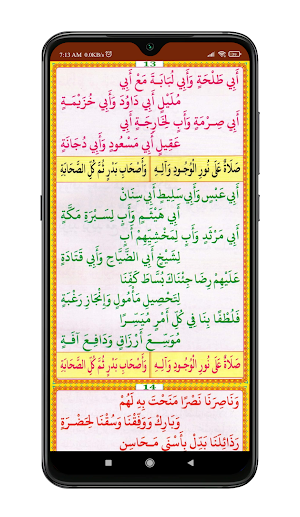 7:13 AM 0.0KB/s
13
أَبِي طَلْحَةٍ وَأَبِي لُبَابَةَ مَعْ أَبِي
مُلَيْلٍ أَبِي دَاوُدَ وَأَبِي خُزَيْمَةٍ
أَبِي صِرْمَةٍ وَأَبٍ لِخَارِجَةٍ أَبِي
عَقِيلٍ أَبِي مَسْعُودٍ وَأَبِي دُجَانَةٍ
صَلَاةٌ عَلَى نُورِ الْوُجُودِ وَآلِهِ وَأَصْحَابِ بَدْرٍ ثُمَّ كُلِّ الصَّحَابَةِ
أَبِي عَبْسٍ وَأَبِي سَلِيطٍ أَبِي سِنَانْ
أَبِي هَيْثَمٍ وَأَبٍ لِسَبْرَةِ مَكَّةٍ
أَبِي مَرْثَدٍ وَأَبٍ لِمَخْشِيِّهِمْ أَبٍ
لِشَيْخٍ أَبِي الضَّيَّاحِ وَأَبِي قَتَادَةٍ
عَلَيْهِمْ رِضًا جِئْنَاكَ بُسَّاطَ كَفِّنَا
لِتَحْصِيلِ مَأْمُولٍ وَإِنْجَازِ رَغْبَةٍ
فَلُطْفًا بِنَا فِي كُلِّ أَمْرٍ مُيَسِّرًا
مُوَسِّعَ أَرْزَاقٍ وَدَافِعَ آفَةٍ
صَلَاةٌ عَلَى نُورِ الْوُجُودِ وَآلِهِ وَأَصْحَابِ بَدْرٍ ثُمَّ كُلِّ الصَّحَابَةِ
14
وَنَاصِرَنَا نَصْرًا مَنَحْتَ بِهِ لَهُمْ
وَبَارِكْ وَوَفِّقْنَا وَسُقْنَا لِحَضْرَةٍ
رَذَائِلَنَا بَدِّلْ بِأَسْنَى مَحَاسِنٍ